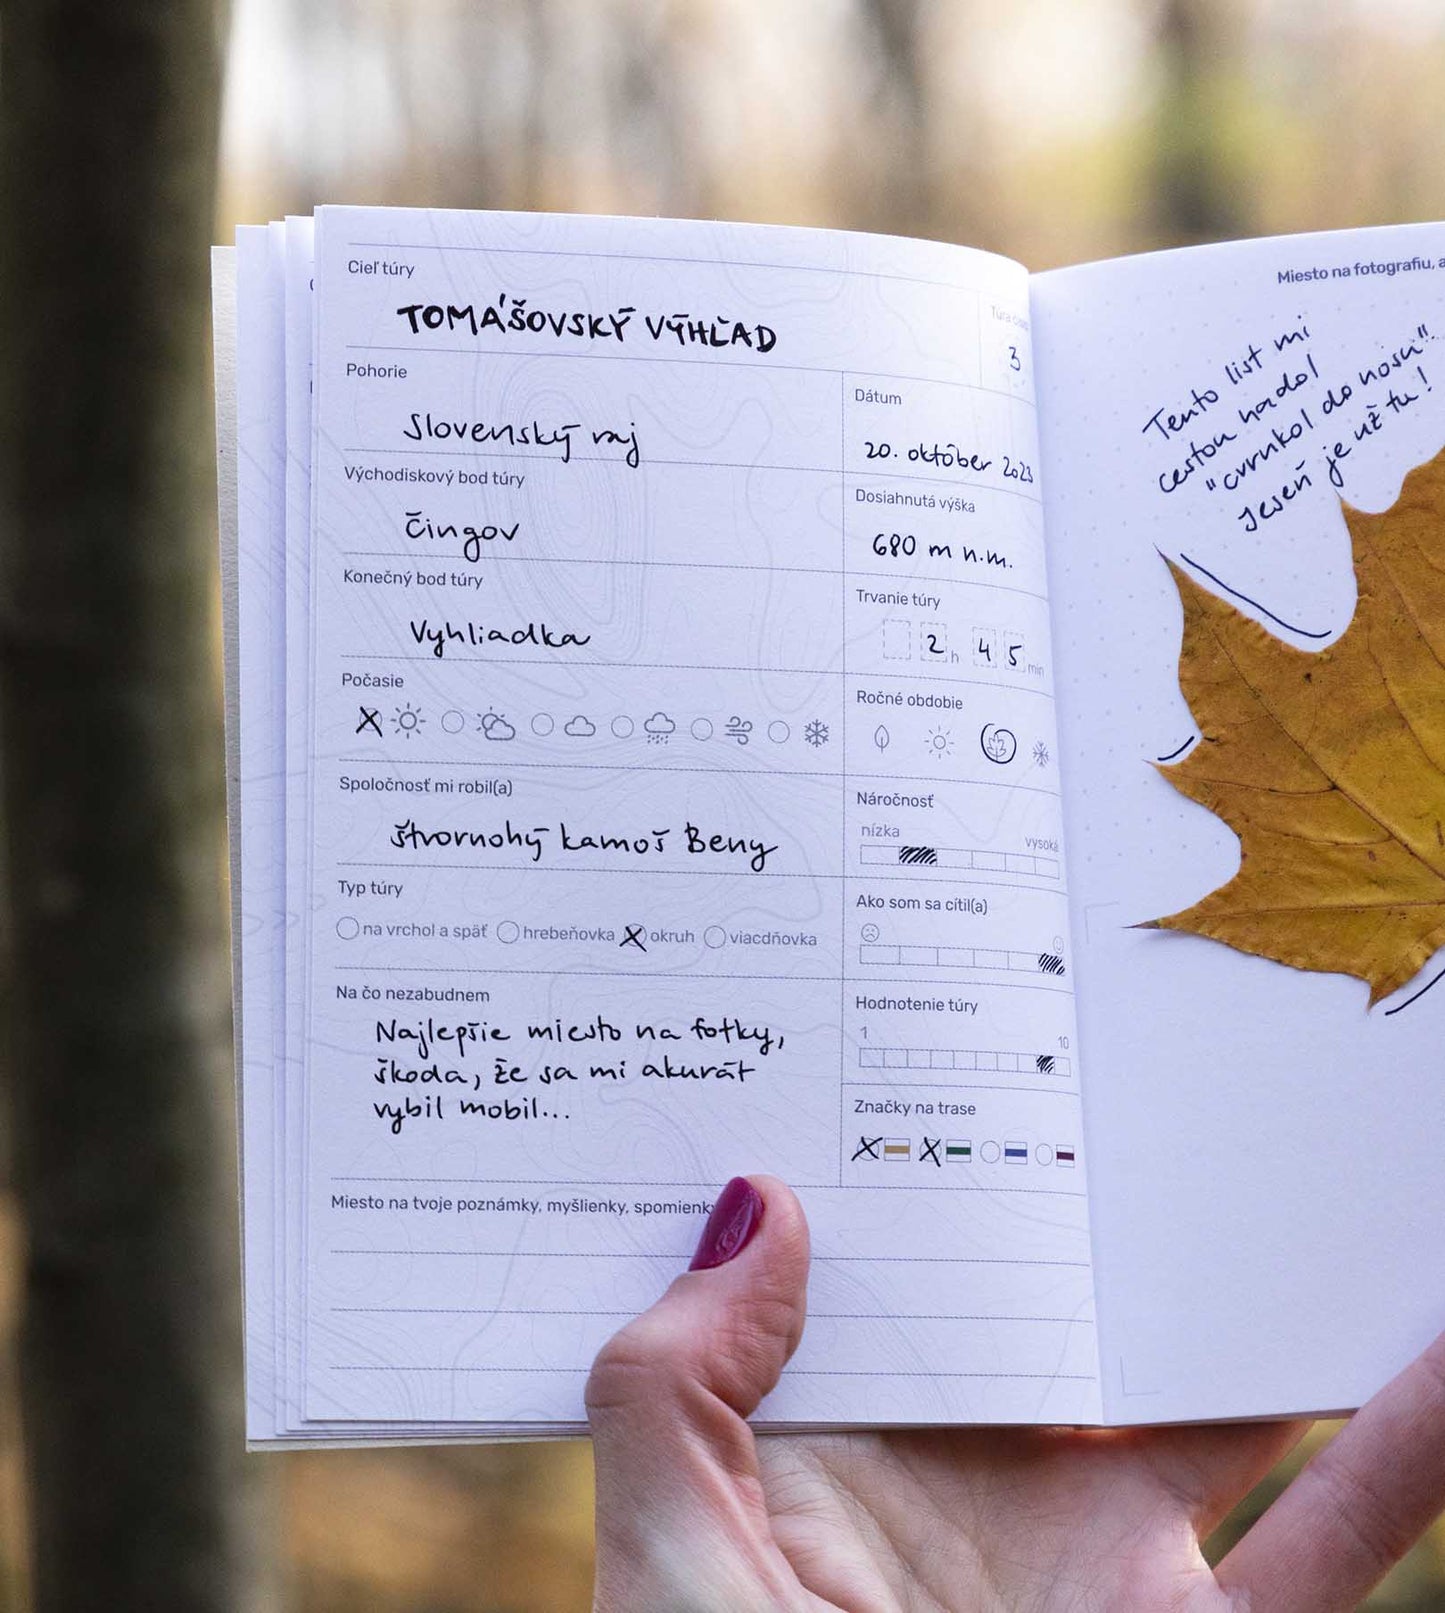 Cieľ túry
TOMÁŠOVSKÝ VÝHĽAD
3
Pohorie
Slovenský raj
Dátum
20. október 2023
Východiskový bod túry
Čingov
Dosiahnutá výška
680 m n.m.
Konečný bod túry
Vyhliadka
Trvanie túry
2 h 45 min
Počasie
X
Ročné obdobie
Spoločnosť mi robil(a)
štvornohý kamoš Beny
Náročnosť
nízka vysoká
Typ túry
na vrchol a späť hrebeňovka X okruh viacdňovka
Ako som sa cítil(a)
Na čo nezabudnem
Najlepšie miesto na fotky,
škoda, že sa mi akurát
vybil mobil...
Hodnotenie túry
1 10
Značky na trase
X X
Miesto na tvoje poznámky, myšlienky, spomienky
Miesto na fotografiu, a
Tento list mi
cestou hadol
"cvrnkol do nosu"!
Jeseň je už tu!